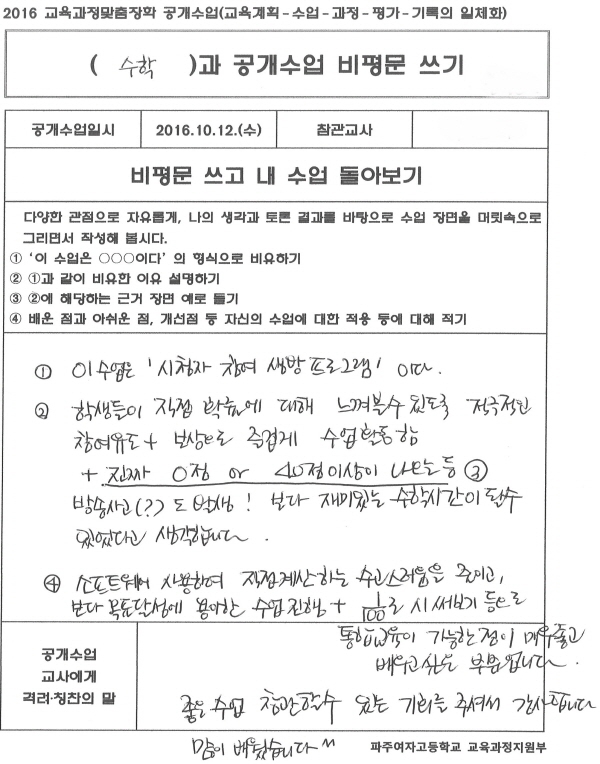 2016 교육과정맞춤장학 공개수업(교육계획-수업-과정-평가-기록의 일체화)
( 수학 )과 공개수업 비평문 쓰기
공개수업일시 2016.10.12.(수) 참관교사
비평문 쓰고 내 수업 돌아보기
다양한 관점으로 자유롭게, 나의 생각과 토론 결과를 바탕으로 수업 장면을 머릿속으로
그리면서 작성해 봅시다.
① '이 수업은 ○○○이다' 의 형식으로 비유하기
② ①과 같이 비유한 이유 설명하기
③ ②에 해당하는 근거 장면 예로 들기
④ 배운 점과 아쉬운 점, 개선점 등 자신의 수업에 대한 적용 등에 대해 적기
① 이 수업은 '시청자 참여 생방 프로그램' 이다.
② 학생들이 직접 확률에 대해 느껴볼수 있도록 적극적인
참여유도 + 보상으로 즐겁게 수업활동함
+ 진짜 0점 or 40점이상이 나오는 등 ③
방송사고(??)도 발생! 보다 재미있는 수학시간이 될수
있었다고 생각합니다.
④ 소프트웨어 사용하여 직접계산하는 수고스러움을 줄이고,
보다 목표달성에 용이한 수업진행 + 1/100로 시 써보기 등으로
통합교육이 가능한 점이 매우좋고
배우고 싶은 부분입니다.
공개수업
교사에게
격려·칭찬의 말
좋은 수업 참관할수 있는 기회를 주셔서 감사합니다
많이 배웠습니다 ^^
파주여자고등학교 교육과정지원부